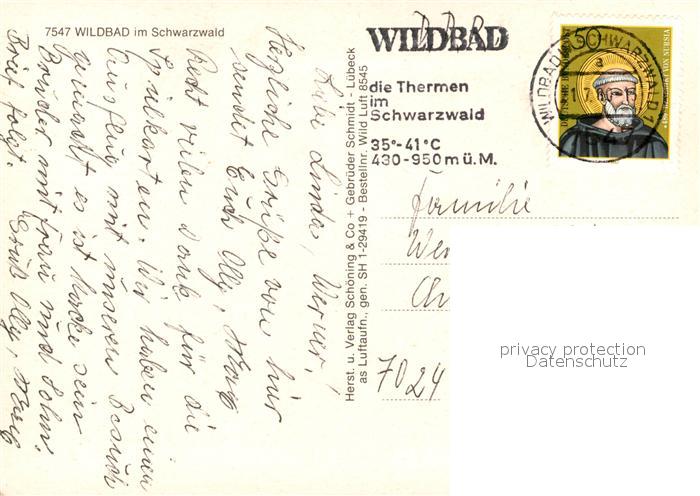 7547 WILDBAD im Schwarzwald
Liebe Linde, Werner!
Herzliche Grüße von hier
sendet Euch Olly,
Recht vielen Dank für die
Spielkarten. Wir haben einen
Ausflug mit unseren Besuch
gemacht es ist sein
Bruder mit Frau und Sohn.
Brief folgt. Gruß Olly,
Herst. u. Verlag Schöning & Co + Gebrüder Schmidt - Lübeck
as Luftaufn., gen. SH 1-29419 - Bestellnr. Wild Luft 8545
WILDBAD
die Thermen
im
Schwarzwald
35°-41°C
430-950m ü.M.
WILDBAD SCHWARZWALD 1
a
50
DEUTSCHE BUNDESPOST
VON NURSIA
Familie
7024
privacy protection
Datenschutz